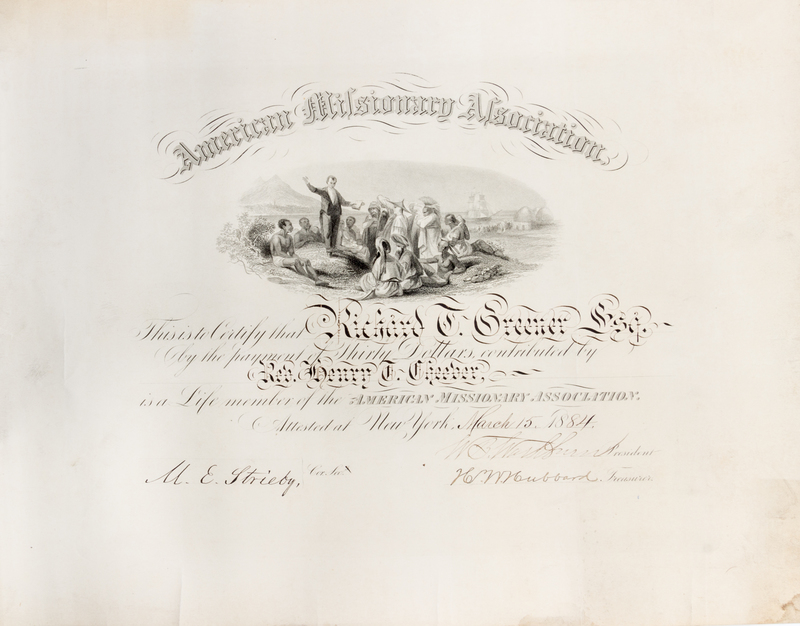 American Missionary Association.
This is to Certify that Richard T. Greener Esq.
by the payment of Thirty Dollars, contributed by
Rev. Henry T. Cheever,
is a Life member of the AMERICAN MISSIONARY ASSOCIATION.
Attested at New York, March 15. 1884.
President
M. E. Strieby, Cor. Sec.
H. W. Hubbard. Treasurer.